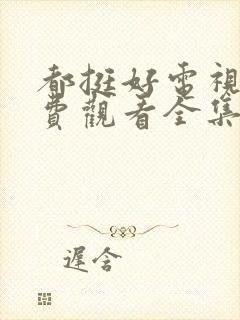 都挺好電視
費觀看全集
遲含